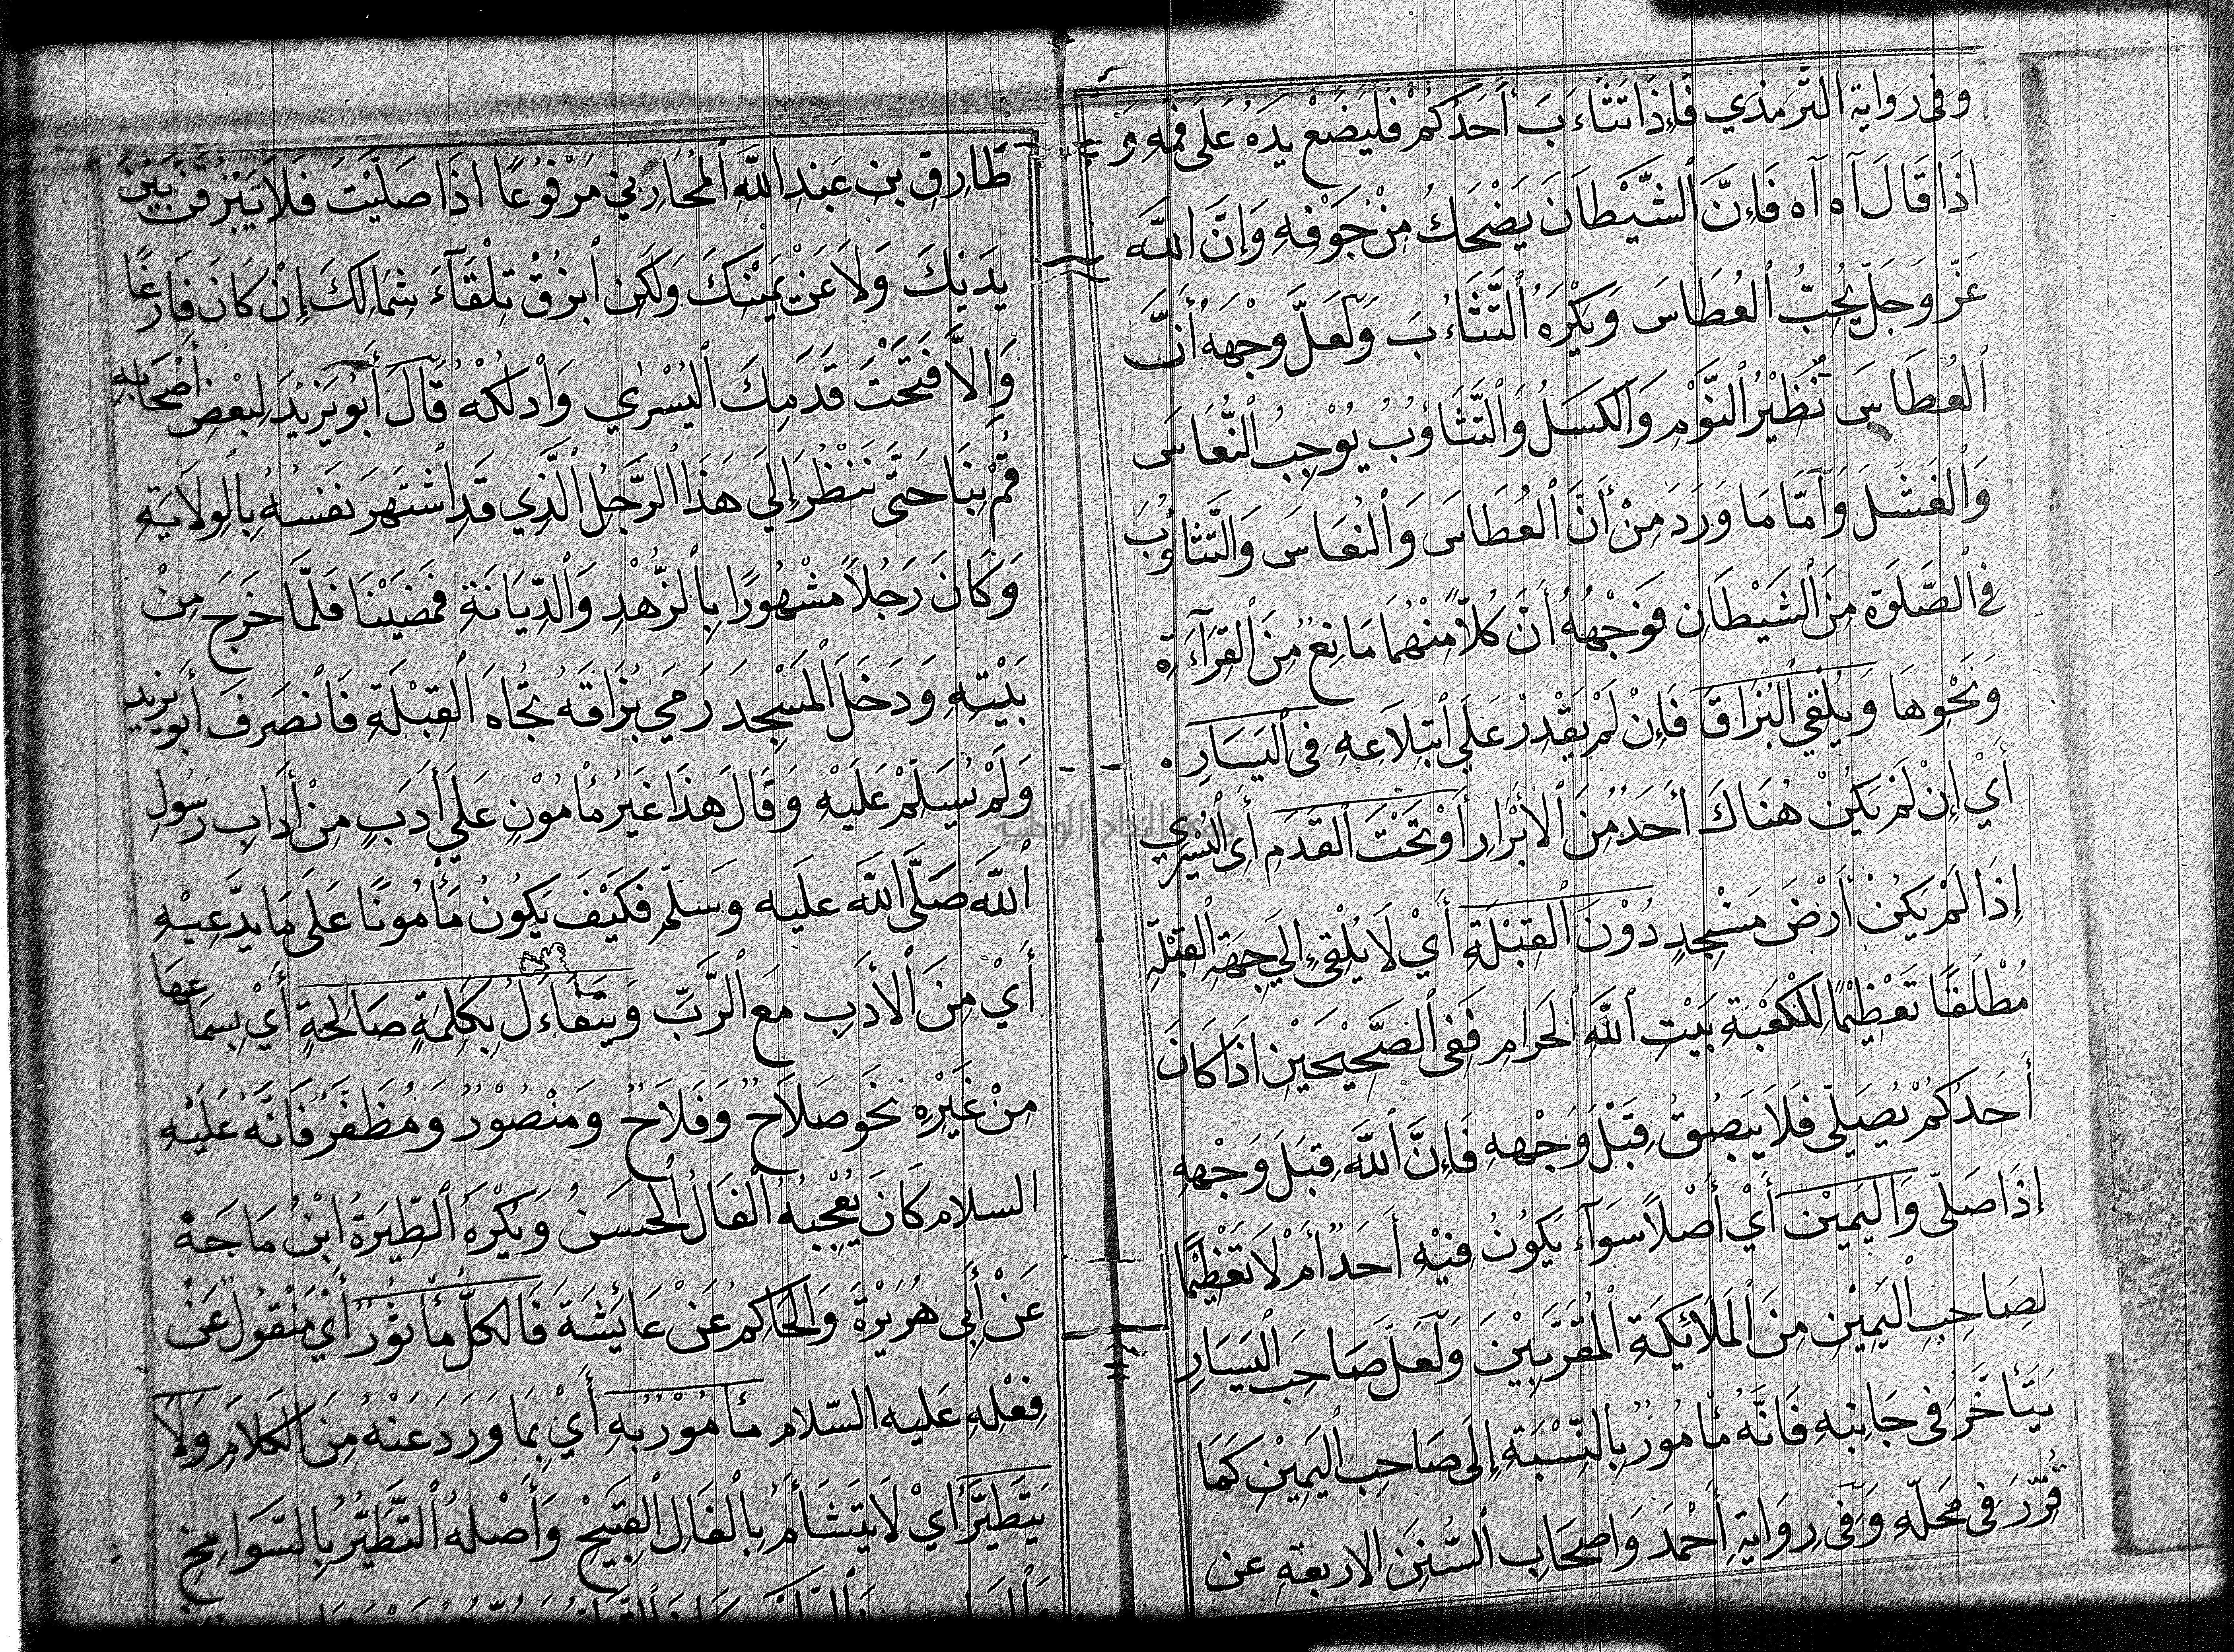 وَفِى رِوَايَةِ التِّرْمِذِي فَاِذَا تَثَاءَبَ أَحَدُكُمْ فَلْيَضَعْ يَدَهُ عَلَى فَمِهِ وَ
اِذَا قَالَ آه آه فَاِنَّ الشَّيْطَانَ يَضْحَكُ مِنْ جَوْفِهِ وَاِنَّ اللَّهَ
عَزَّ وَجَلَّ يُحِبُّ الْعُطَاسَ وَيَكْرَهُ التَّثَاءُبَ وَلَعَلَّ وَجْهَهُ أَنَّ
الْعُطَاسَ نُظَيْرُ النَّوْمِ وَالْكَسَلُ وَالتَّثَاؤُبُ يُوْجِبُ النُّعَاسَ
وَالْفَشَلَ وَاَمَّا مَا وَرَدَ مِنْ أَنَّ الْعُطَاسَ وَالنُعَاسَ وَالتَّثاؤُبَ
فِي الصَّلَوةِ مِنَ الشَّيْطَانِ فَوَجْهُهُ أَنَّ كُلًّا مِنْهُمَا مَانِعٌ مِنَ الْقِرَآءَةِ
وَنَحْوِهَا وَيُلْقِي الْبُزَاقَ فَاِنْ لَمْ يَقْدِرْ عَلَي ابْتِلَاعِهِ فِى الْيَسَارِ
أَيْ اِنْ لَمْ يَكُنْ هُنَاكَ أَحَدٌ مِنَ الْأَبْرَارِ أَوْ تَحْتَ الْقَدَمِ أَىِ الْيُسْرٰي
إِذَا لَمْ يَكُنْ أَرْضَ مَسْجِدٍ دُوْنَ الْقِبْلَةِ أَيْ لَا يُلْقِيْ إِلَي جِهَةِ الْقِبْلَةِ
مُطْلَقًا تَعْظِيْمًا لِلْكَعْبَةِ بَيْتِ اللَّهِ الْحَرَامِ فَفِى الصَّحِيْحَيْنِ اِذَا كَانَ
أَحَدُكُمْ يُصَلِّي فَلَا يَبْصُقُ قِبَلَ وَجْهِهِ فَاِنَّ اللَّهَ قِبَلَ وَجْهِهِ
إِذَا صَلَّى وَالْيَمِيْنِ أَيْ أَصْلًا سَوَآء يَكُوْنُ فِيْهِ أَحَدٌ أَمْ لَا تَعْظِيْمًا
لِصَاحِبِ الْيَمِيْنِ مِنَ الْمَلَائِكَةِ الْمُقَرَّبِيْنَ وَلَعَلَّ صَاحِبَ الْيَسَارِ
يَتَأَخَّرُ فِى جَانِبِهِ فَانَّهُ مَأْمُوْرٌ بِالنِّسْبَةِ اِلَى صَاحِبِ الْيَمِيْنِ كَمَا
قُرِّرَ فِى مَحَلِّهِ وَفِى رِوَايَةِ أَحْمَدَ وَاَصْحَابِ السُّنَنِ الاربعة عن
طَارِقِ بْنِ عَبْدِ اللَّهِ الْمُحَارِبِيِّ مَرْفُوْعًا اِذَا صَلَّيْتَ فَلَا تَبْزُقَنَّ بَيْنَ
يَدَيْكَ وَلَا عَنْ يَمِيْنِكَ وَلَكِنِ ابْزُقْ تِلْقَآءَ شِمَالِكَ إِنْ كَانَ فَارِغًا
وَاِلَّا فَتَحْتَ قَدَمِكَ الْيُسْرٰي وَادْلُكْهُ قَالَ أَبُوْ يَزِيْدَ لِبَعْضِ أَصْحَابِهِ
قُمْ بِنَا حَتَّى نَنْظُرَ اِلَي هَذَا الرَّجُلِ الَّذِي قَدِ اشْتَهَرَ نَفْسُهُ بِالْوِلَايَةِ
وَكَانَ رَجُلًا مَشْهُوْرًا بِالزُّهْدِ وَالدِّيَانَةِ فَمَضَيْنَا فَلَمَّا خَرَجَ مِنْ
بَيْتِهِ وَدَخَلَ الْمَسْجِدَ رَمَي بُزَاقَهُ تُجَاهَ الْقِبْلَةِ فَانْصَرَفَ أَبُو يزيد
وَلَمْ يُسَلِّمْ عَلَيْهِ وَقَالَ هَذَا غَيْرُ مَأْمُوْنٍ عَلَي أَدَبٍ مِنْ أَدَابِ رَسُوْلِ
اللَّهِ صَلَّى اللَّه عليه وسلّم فَكَيْفَ يَكُوْنُ مَأْمُونًا عَلَى مَا يَدَّعِيْهِ
أَيْ مِنَ الْأَدَبِ مَعَ الرَّبِّ وَيَتَفَاءَلُ بِكَلِمَةٍ صَالِحَةٍ أَيْ بِسِمَاعِهَا
مِنْ غَيْرِهِ نَحْوُ صَلَاحٌ وَفَلَاحٌ وَمَنْصُوْرٌ وَمُظَفَّرٌ فَانَّهُ عَلَيْهِ
السلام كَانَ يُعْجِبُهُ الْفَالُ الْحَسَنُ وَيَكْرَهُ الطِّيَرَةُ ابْنُ مَاجَهْ
عَنْ أَبِى هُرَيْرَةَ وَالْحَاكِمُ عَنْ عَائِشَةَ فَالْكُلُّ مَأْثُوْرٌ أَيْ مَنْقُوْلٌ عَنْ
فِعْلِهِ عَليه السّلام مَأْمُوْرٌ بِهِ أَيْ بِمَا وَرَدَ عَنْهُ مِنَ الْكَلَامِ وَلَا
يَتَطَيَّرُ أَيْ لَا يَتَشَأَّمُ بِالْفَالِ الْقَبِيْحِ وَأَصْلُهُ التَّطَيُّرُ بِالسَّوَانِحِ
جامعة النجاح الوطنية